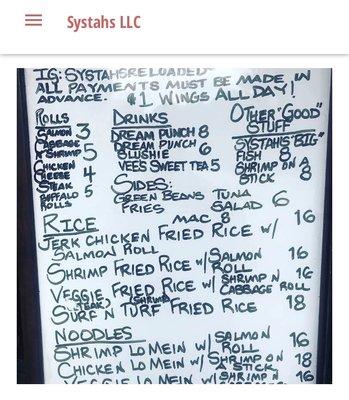 Systahs LLC
IG: SYSTAHSRELOADED
ALL PAYMENTS MUST BE MADE IN
ADVANCE. $1 WINGS ALL DAY!
ROLLS
SALMON 3
CABBAGE
N SHRIMP 5
CHICKEN
CHEESE 4
STEAK 5
BUFFALO
ROLLS
DRINKS
DREAM PUNCH 8
DREAM PUNCH
SLUSHIE 6
VEES SWEET TEA 5
SIDES:
GREEN BEANS
FRIES
TUNA
SALAD 6
MAC 8
OTHER "GOOD"
STUFF
SYSTAHS "BIG"
FISH 8
SHRIMP ON A
STICK 8
RICE
JERK CHICKEN FRIED RICE W/ 16
SALMON ROLL
SHRIMP FRIED RICE W/ SALMON 16
ROLL
VEGGIE FRIED RICE W/ SHRIMP N 16
CABBAGE ROLL
STEAK, SHRIMP
SURF N TURF FRIED RICE 18
NOODLES
SHRIMP LO MEIN W/ SALMON 16
ROLL
CHICKEN LO MEIN W/ SHRIMP ON 18
A STICK
VEGGIE LO MEIN W/ SHRIMP N 16